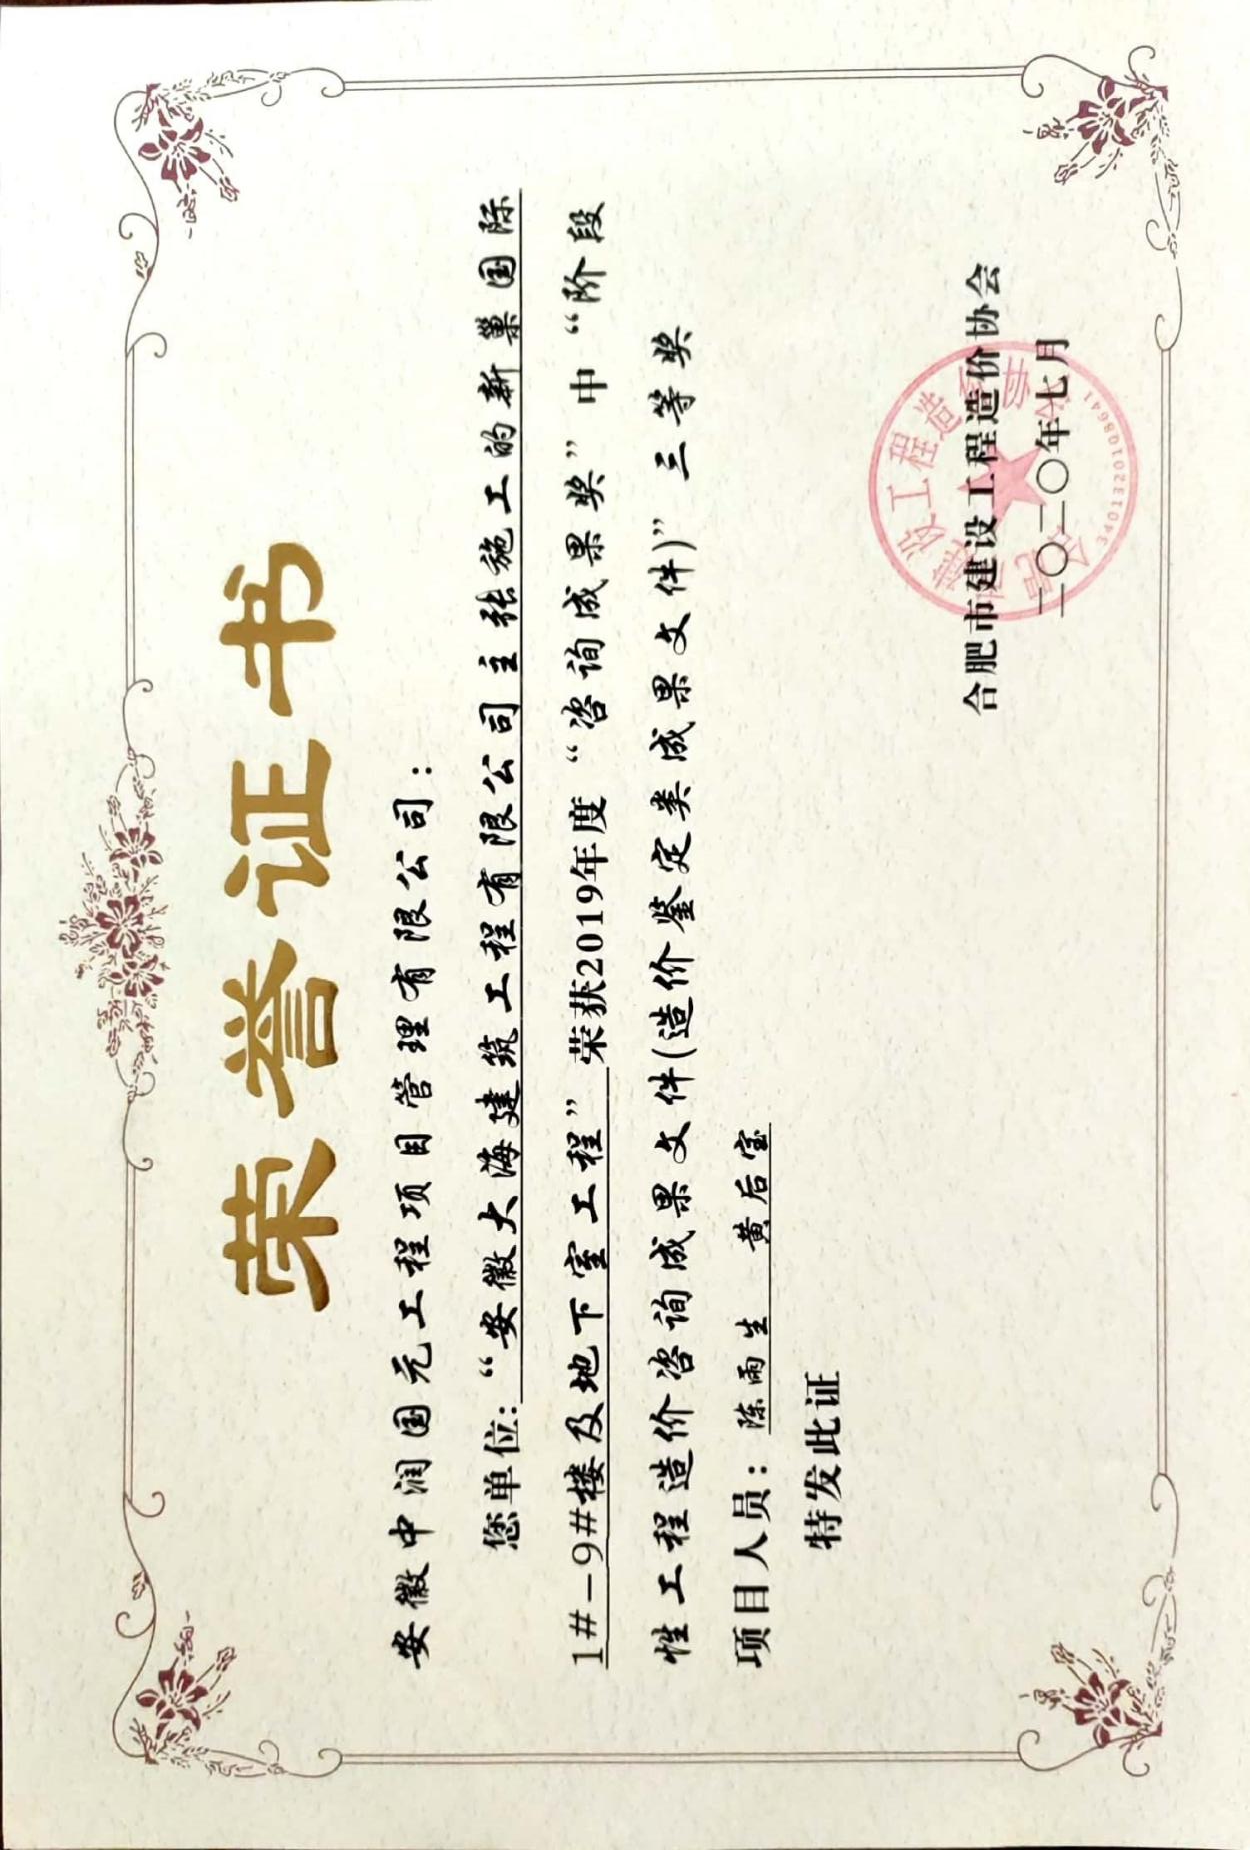 荣誉证书
安徽中润国元工程项目管理有限公司：
您单位：“安徽大海建筑工程有限公司主张施工的新巢国际
1#-9#楼及地下室工程”荣获2019年度“咨询成果奖”中“阶段
性工程造价咨询成果文件(造价鉴定类成果文件)”三等奖
项目人员：陈雨生 黄后宝
特发此证
合肥市建设工程造价协会
二〇二〇年七月
3401321018641